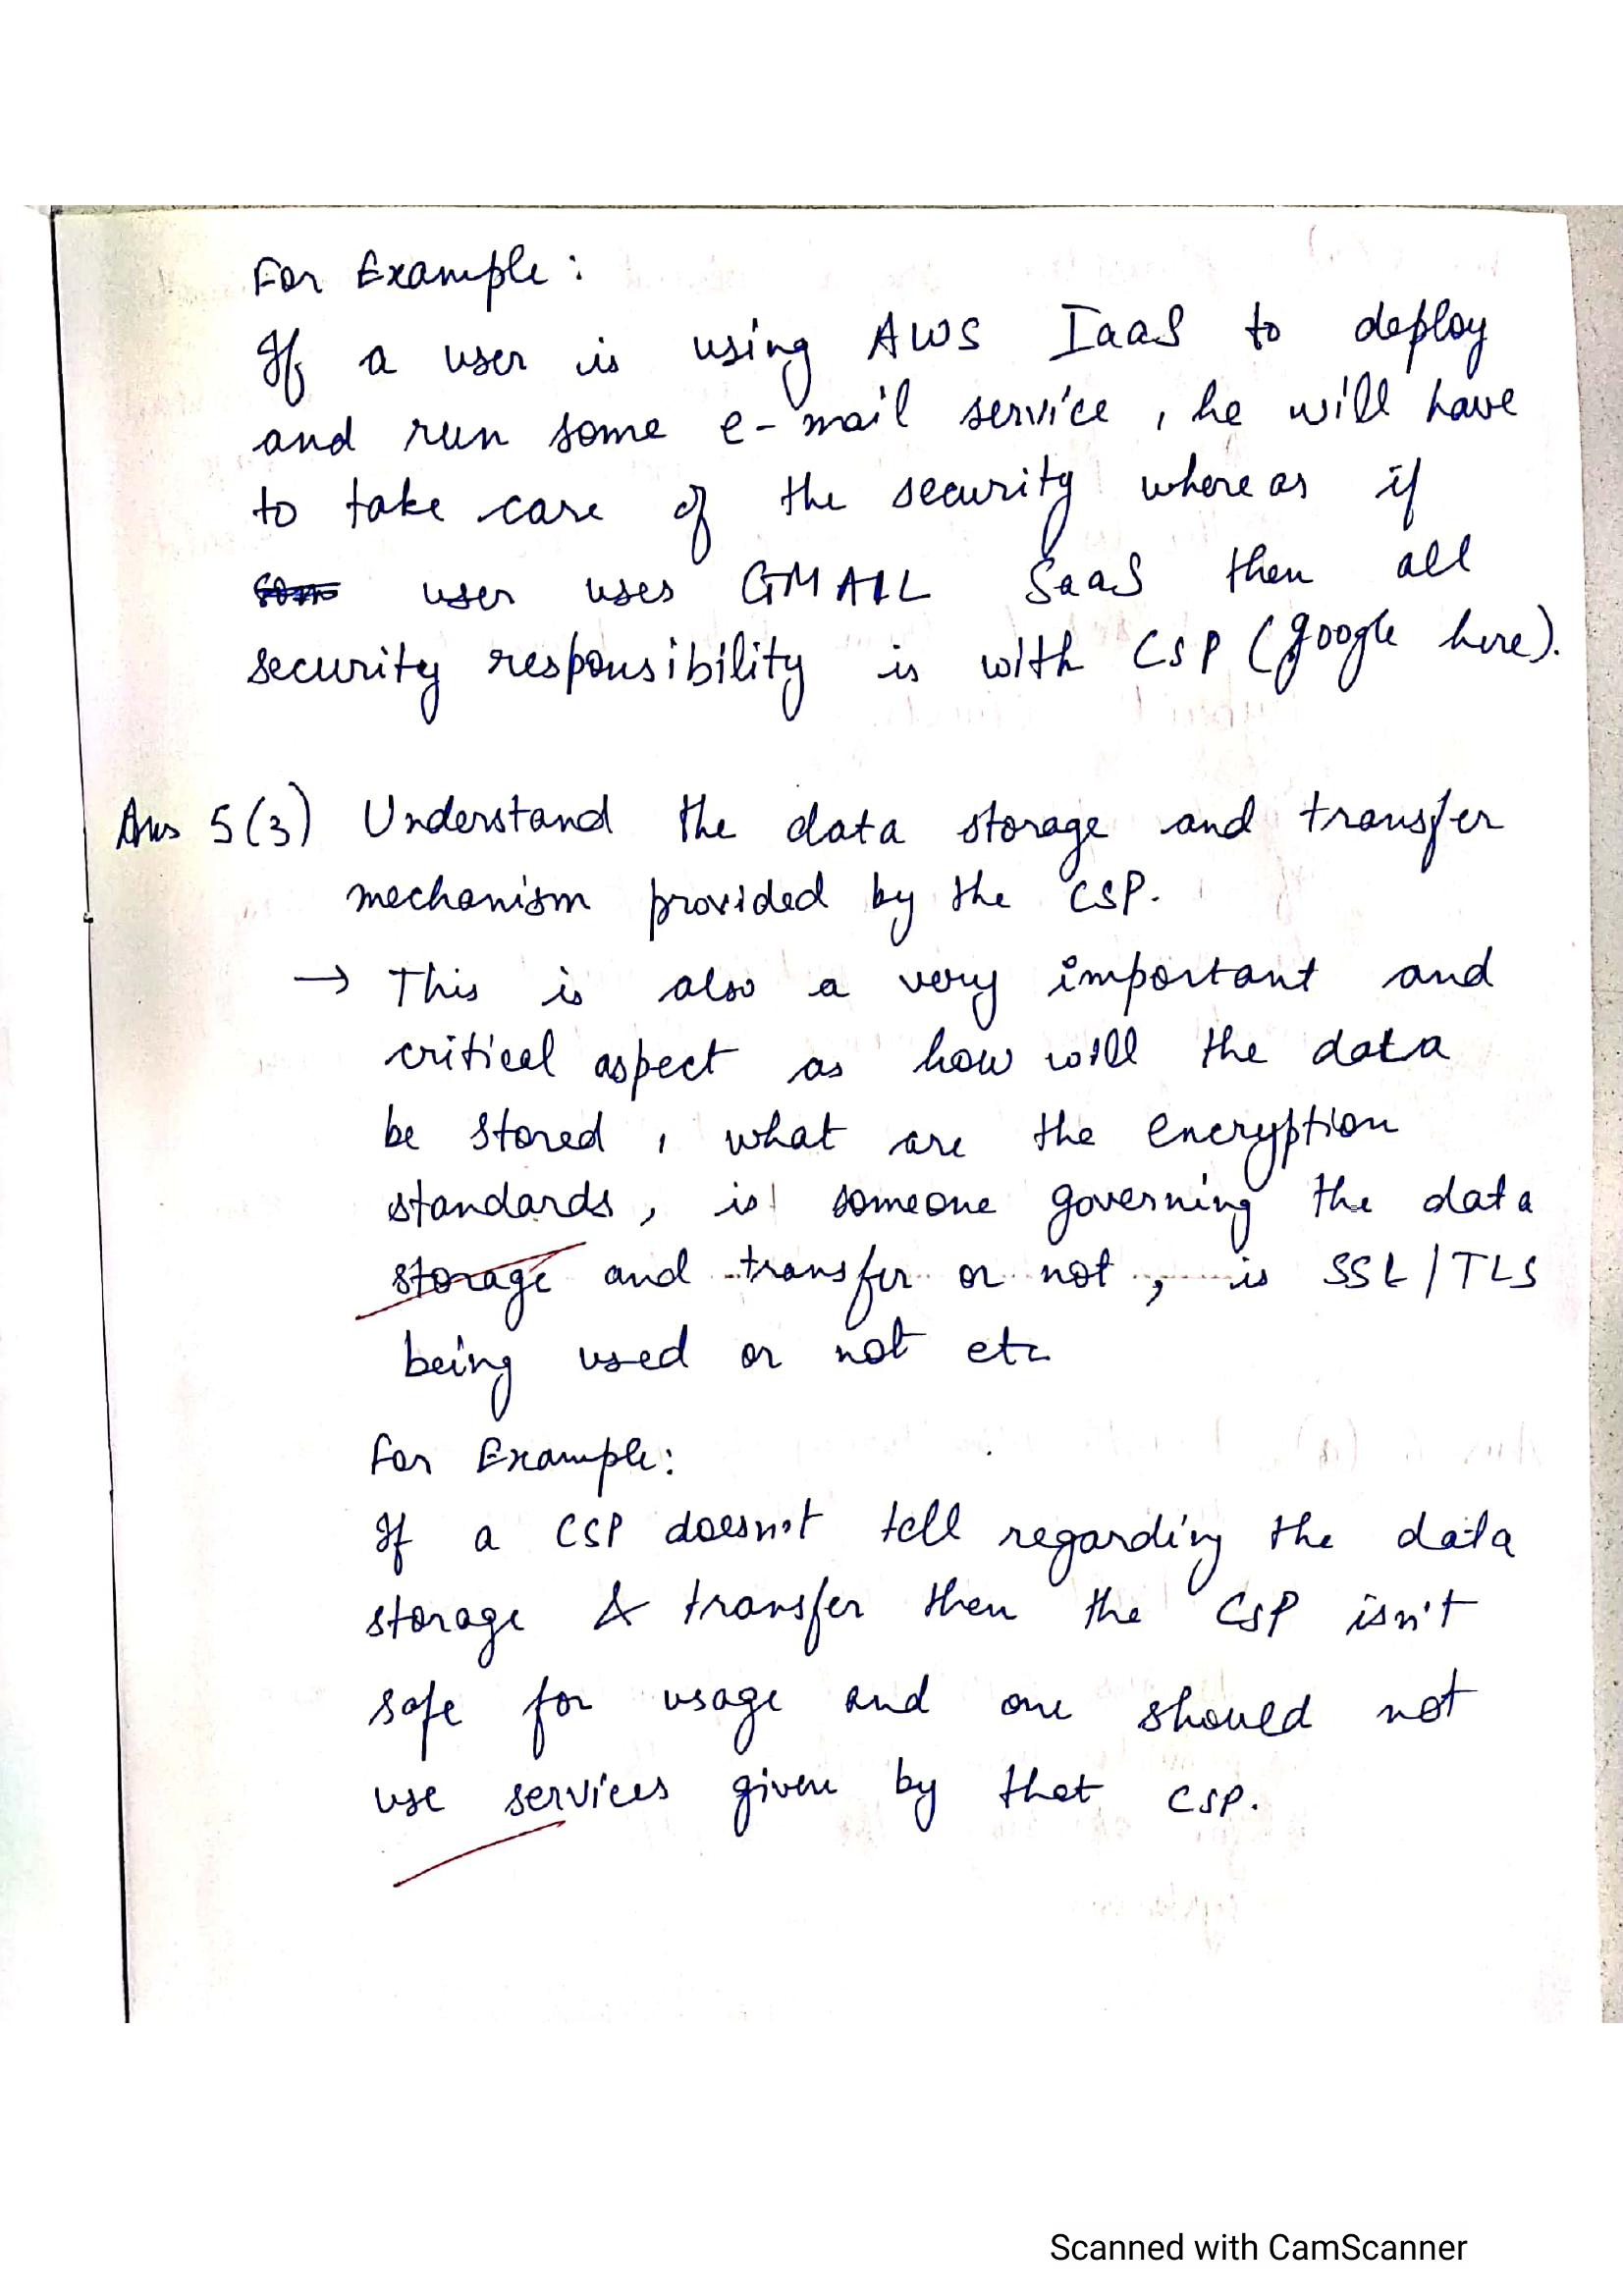 For Example:
If a user is using AWS IaaS to deploy
and run some e-mail service, he will have
to take care of the security where as if
user uses GMAIL SaaS then all
security responsibility is with CSP (google here).
Ans 5(3) Understand the data storage and transfer
mechanism provided by the CSP.
→ This is also a very important and
critical aspect as how will the data
be stored, what are the encryption
standards, is someone governing the data
storage and transfer or not, is SSL/TLS
being used or not etc
For Example:
If a CSP doesn't tell regarding the data
storage & transfer then the CSP isn't
safe for usage and one should not
use services given by that CSP.
Scanned with CamScanner